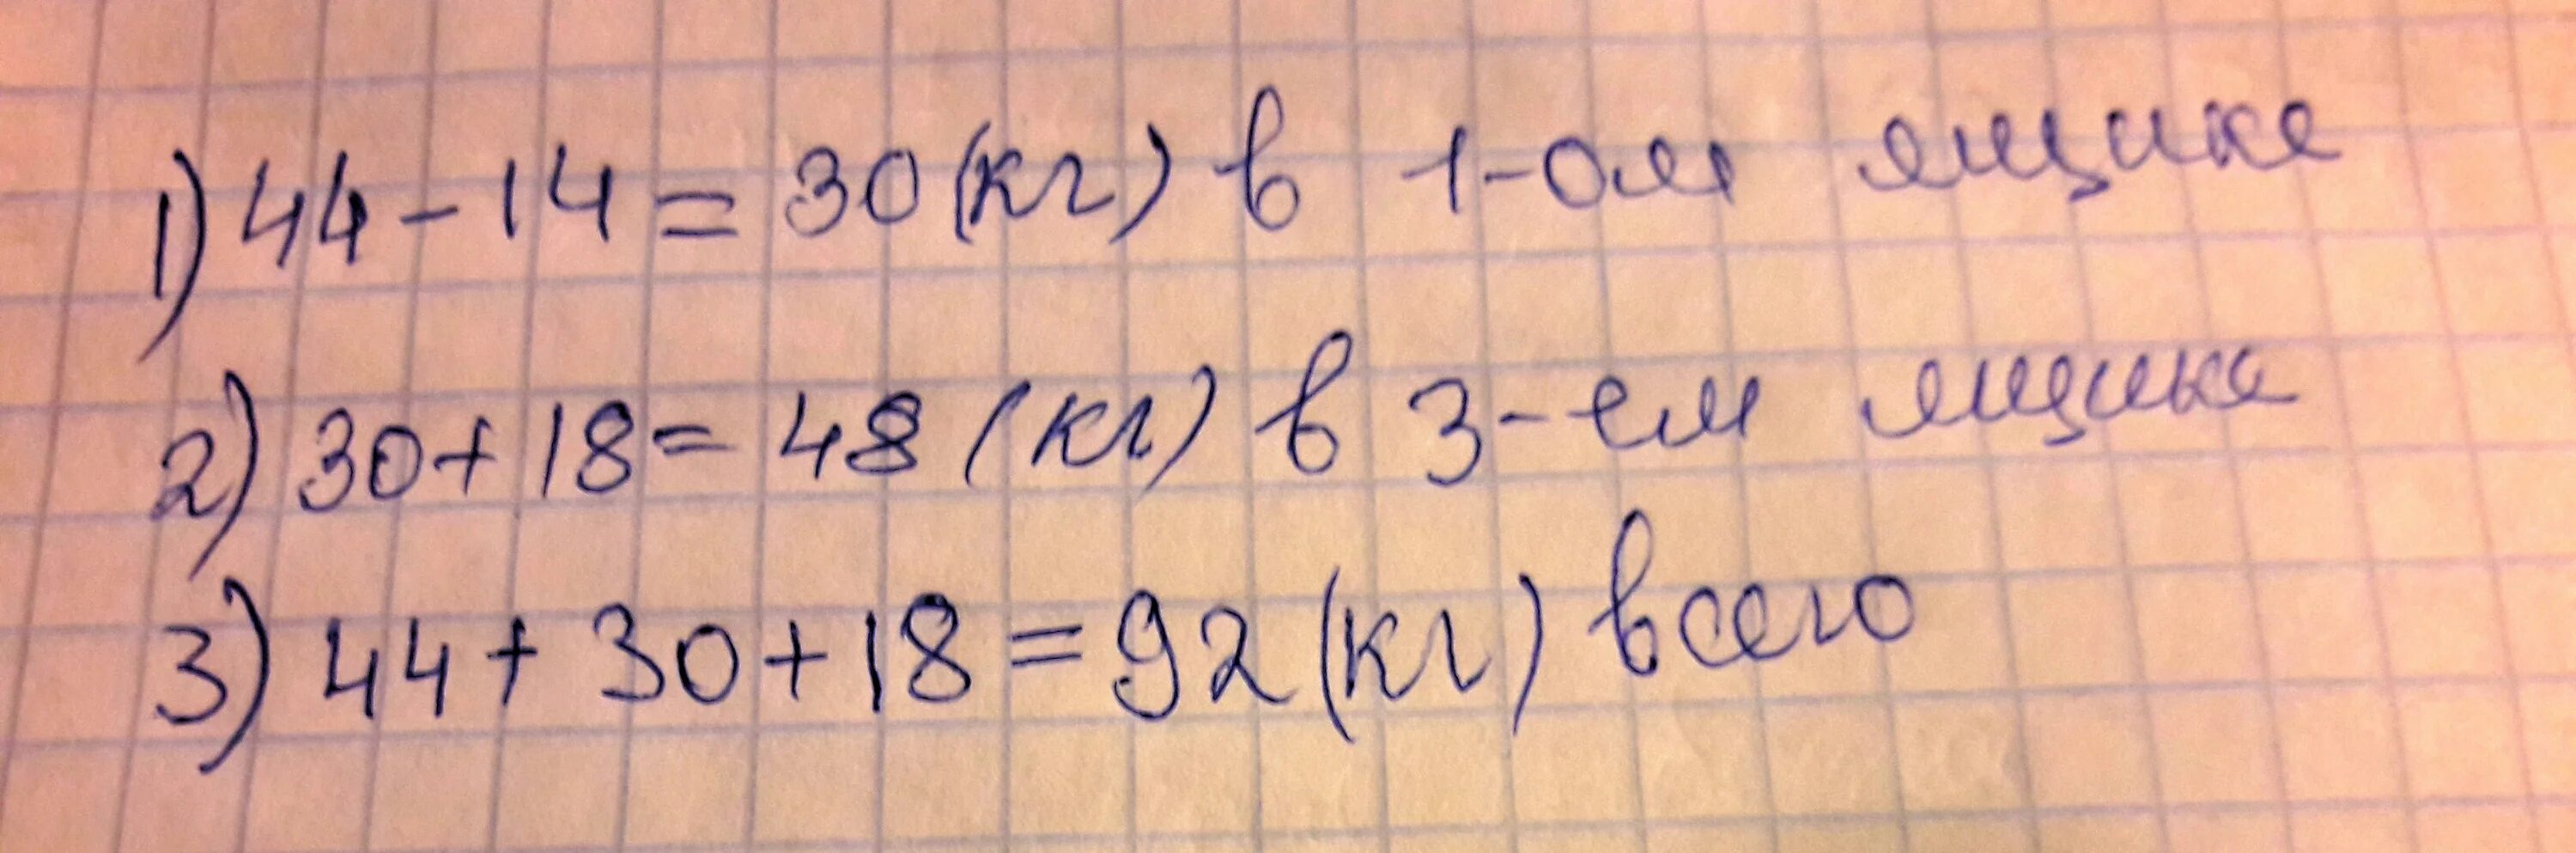 1) 44-14=30(кг) в 1-ом ящике
2) 30+18=48(кг) в 3-ем ящике
3) 44+30+18=92(кг) всего